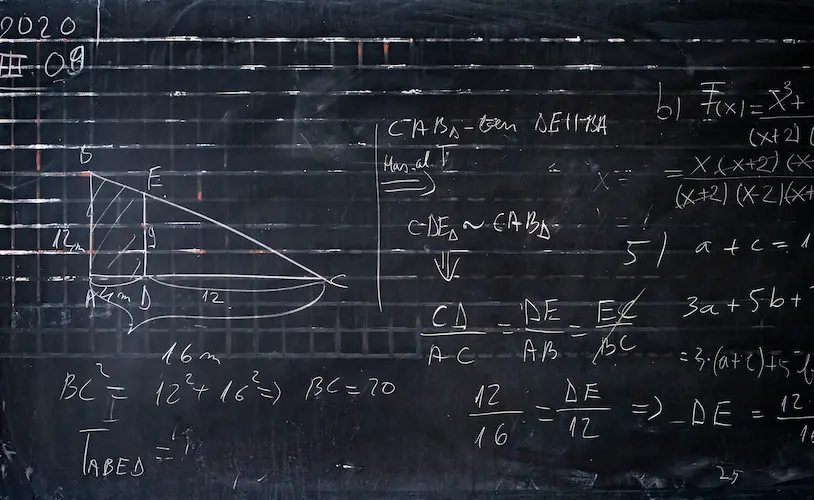 2020
B
E
12m
9
A 4m D 12 C
16m
BC² = 12² + 16² => BC = 20
T_ABED =
CAB△-ben DE||BA
=>
CDE△ ~ CAB△
⇓
CD/AC = DE/AB = EC/BC
12/16 = DE/12 => DE = 12
b) F(x) = x³+
(x+2)(
= x·(x+2)(x-
(x+2)(x-2)(x+
5) a + c = 1
3a + 5b +
= 3·(a+c)+5
25